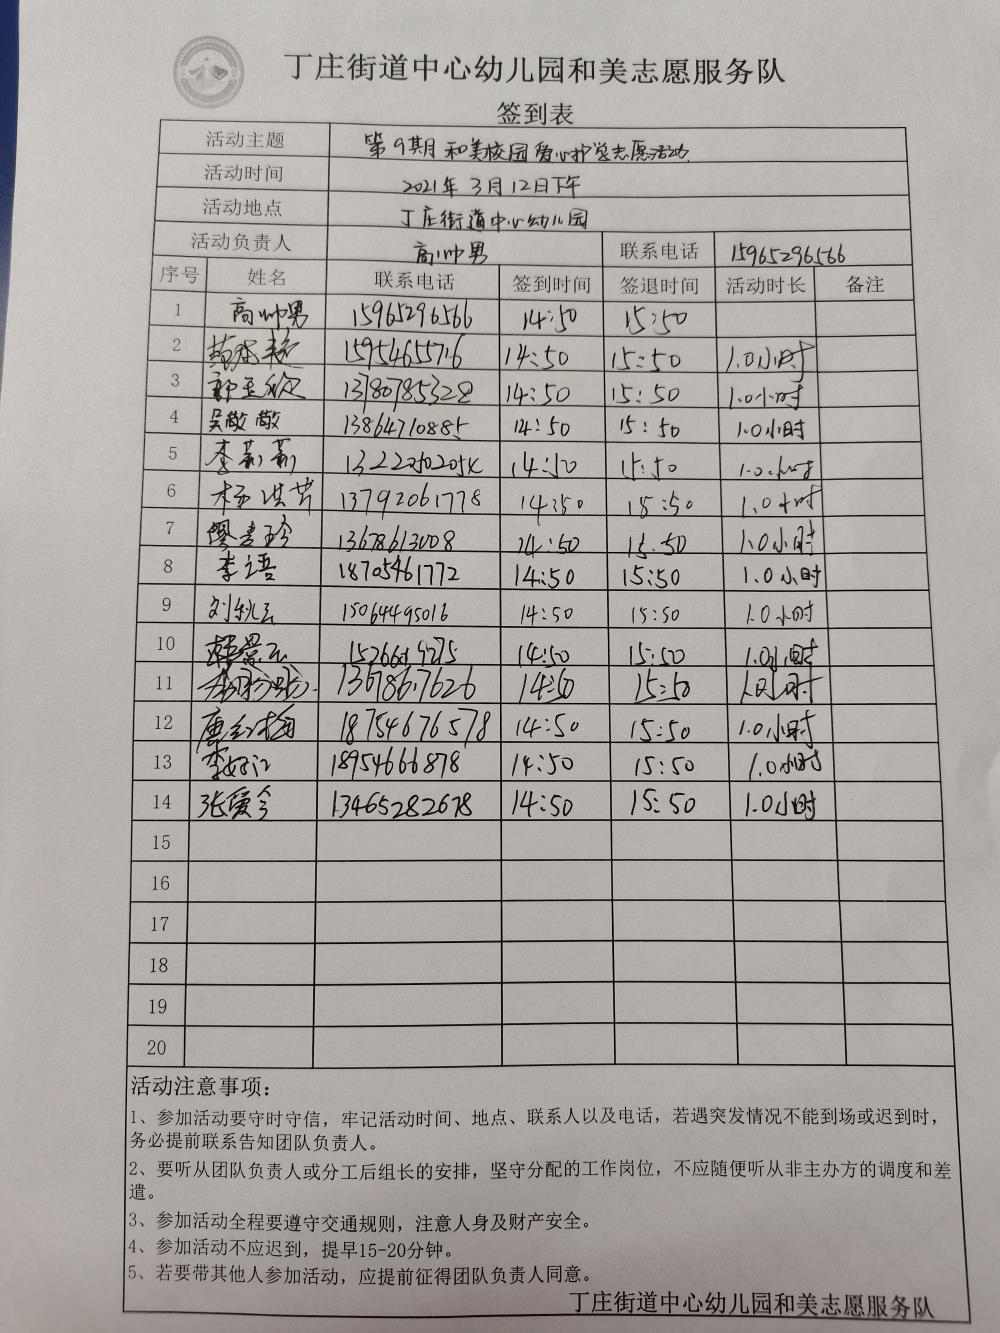 丁庄街道中心幼儿园和美志愿服务队
签到表
活动主题 第9期和美校园爱心护学志愿活动
活动时间 2021年3月12日下午
活动地点 丁庄街道中心幼儿园
活动负责人 高帅男 联系电话 15965296566
序号 姓名 联系电话 签到时间 签退时间 活动时长 备注
1 高帅男 15965296566 14:50 15:50
2 15954655716 14:50 15:50 1.0小时
3 13780785328 14:50 15:50 1.0小时
4 吴敬敬 13864710885 14:50 15:50 1.0小时
5 李莉莉 14:50 15:50 1.0小时
6 杨洪芳 13792061778 14:50 15:50 1.0小时
7 13678613008 14:50 15:50 1.0小时
8 李语 18705461772 14:50 15:50 1.0小时
9 刘秋云 15064495016 14:50 15:50 1.0小时
10 韩景云 14:50 15:50 1.0小时
11 14:50 15:50 1.0小时
12 18754676578 14:50 15:50 1.0小时
13 18954666878 14:50 15:50 1.0小时
14 张爱令 13465282678 14:50 15:50 1.0小时
15
16
17
18
19
20
活动注意事项：
1、参加活动要守时守信，牢记活动时间、地点、联系人以及电话，若遇突发情况不能到场或迟到时，
务必提前联系告知团队负责人。
2、要听从团队负责人或分工后组长的安排，坚守分配的工作岗位，不应随便听从非主办方的调度和差
遣。
3、参加活动全程要遵守交通规则，注意人身及财产安全。
4、参加活动不应迟到，提早15-20分钟。
5、若要带其他人参加活动，应提前征得团队负责人同意。
丁庄街道中心幼儿园和美志愿服务队